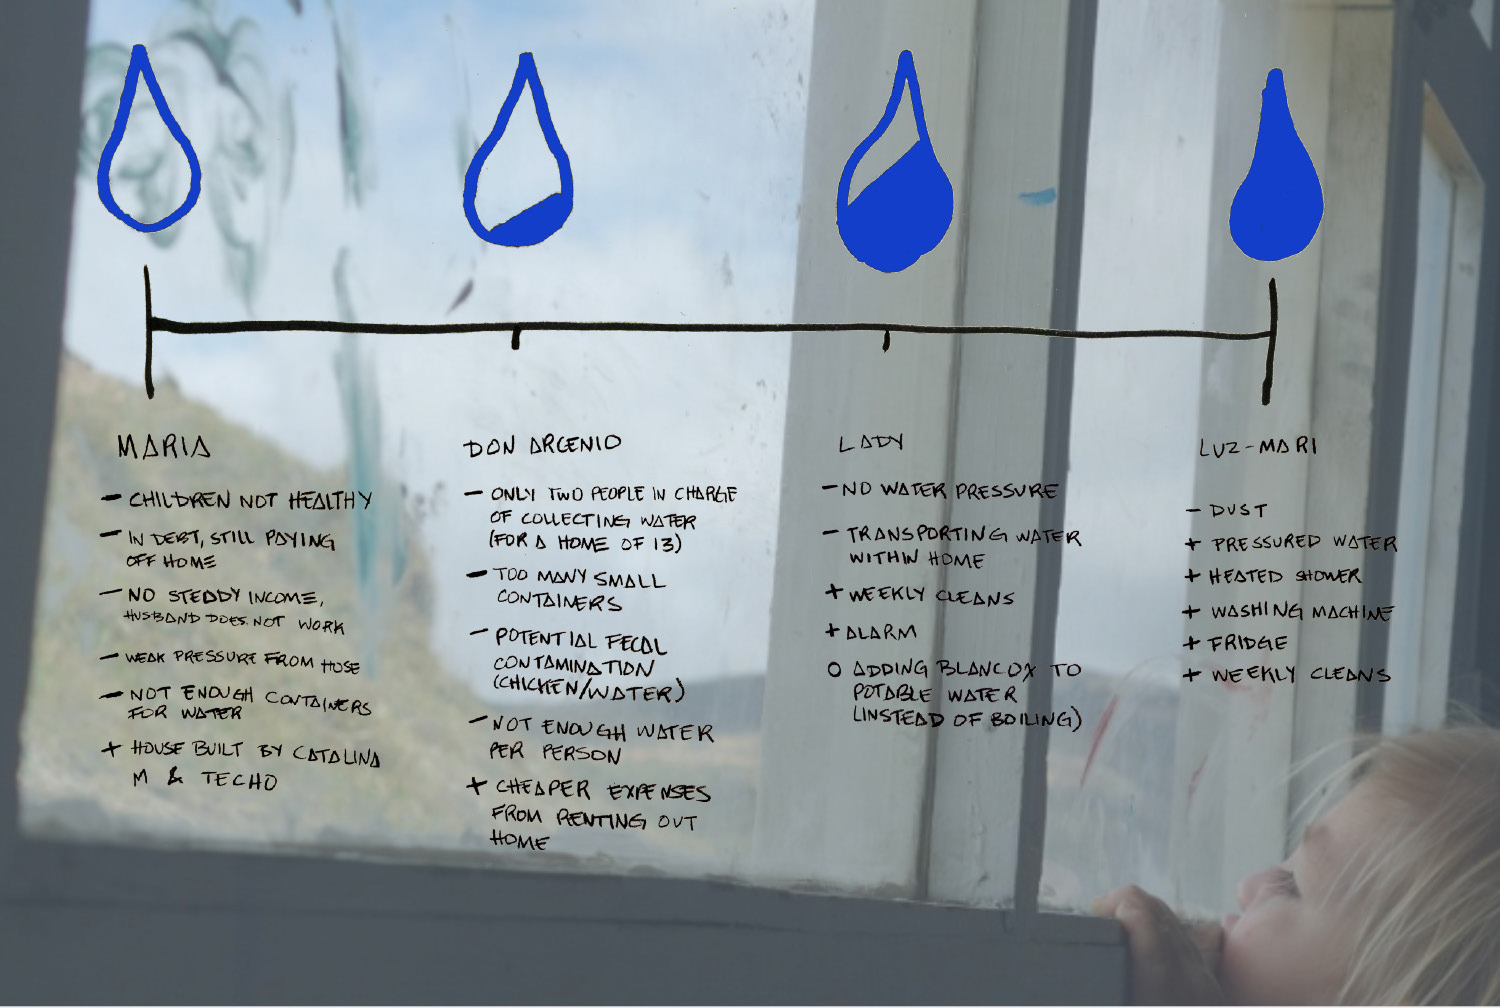 MARIA
– CHILDREN NOT HEALTHY
– IN DEBT, STILL PAYING
OFF HOME
– NO STEADY INCOME,
HUSBAND DOES NOT WORK
– WEAK PRESSURE FROM HOSE
– NOT ENOUGH CONTAINERS
FOR WATER
+ HOUSE BUILT BY CATALINA
M & TECHO
DON ARCENIO
– ONLY TWO PEOPLE IN CHARGE
OF COLLECTING WATER
(FOR A HOME OF 13)
– TOO MANY SMALL
CONTAINERS
– POTENTIAL FECAL
CONTAMINATION
(CHICKEN/WATER)
– NOT ENOUGH WATER
PER PERSON
+ CHEAPER EXPENSES
FROM RENTING OUT
HOME
LADY
– NO WATER PRESSURE
– TRANSPORTING WATER
WITHIN HOME
+ WEEKLY CLEANS
+ ALARM
O ADDING BLANCOX TO
POTABLE WATER
(INSTEAD OF BOILING)
LUZ-MARI
– DUST
+ PRESSURED WATER
+ HEATED SHOWER
+ WASHING MACHINE
+ FRIDGE
+ WEEKLY CLEANS